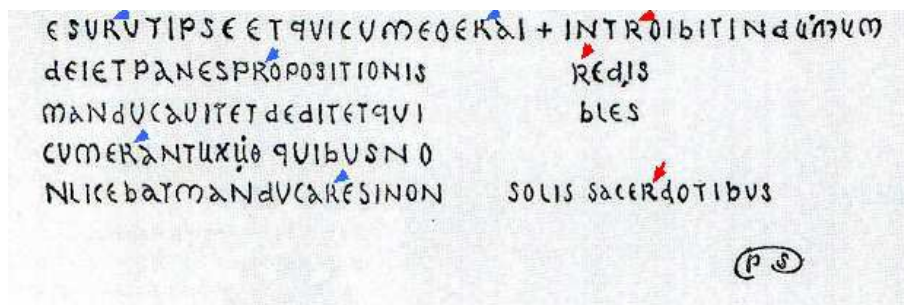 ESURUTIPSE ETQVICVMEOERAI + INTROIBITIN
dEIETPANESPROPOSITIONIS REdIS
MANdUCAUITETdEdITETQVI bLES
CUMERANT QUIbUSNO
NLICEbATMANdVCARESINON SOLIS SACERdOTIbUS
PS